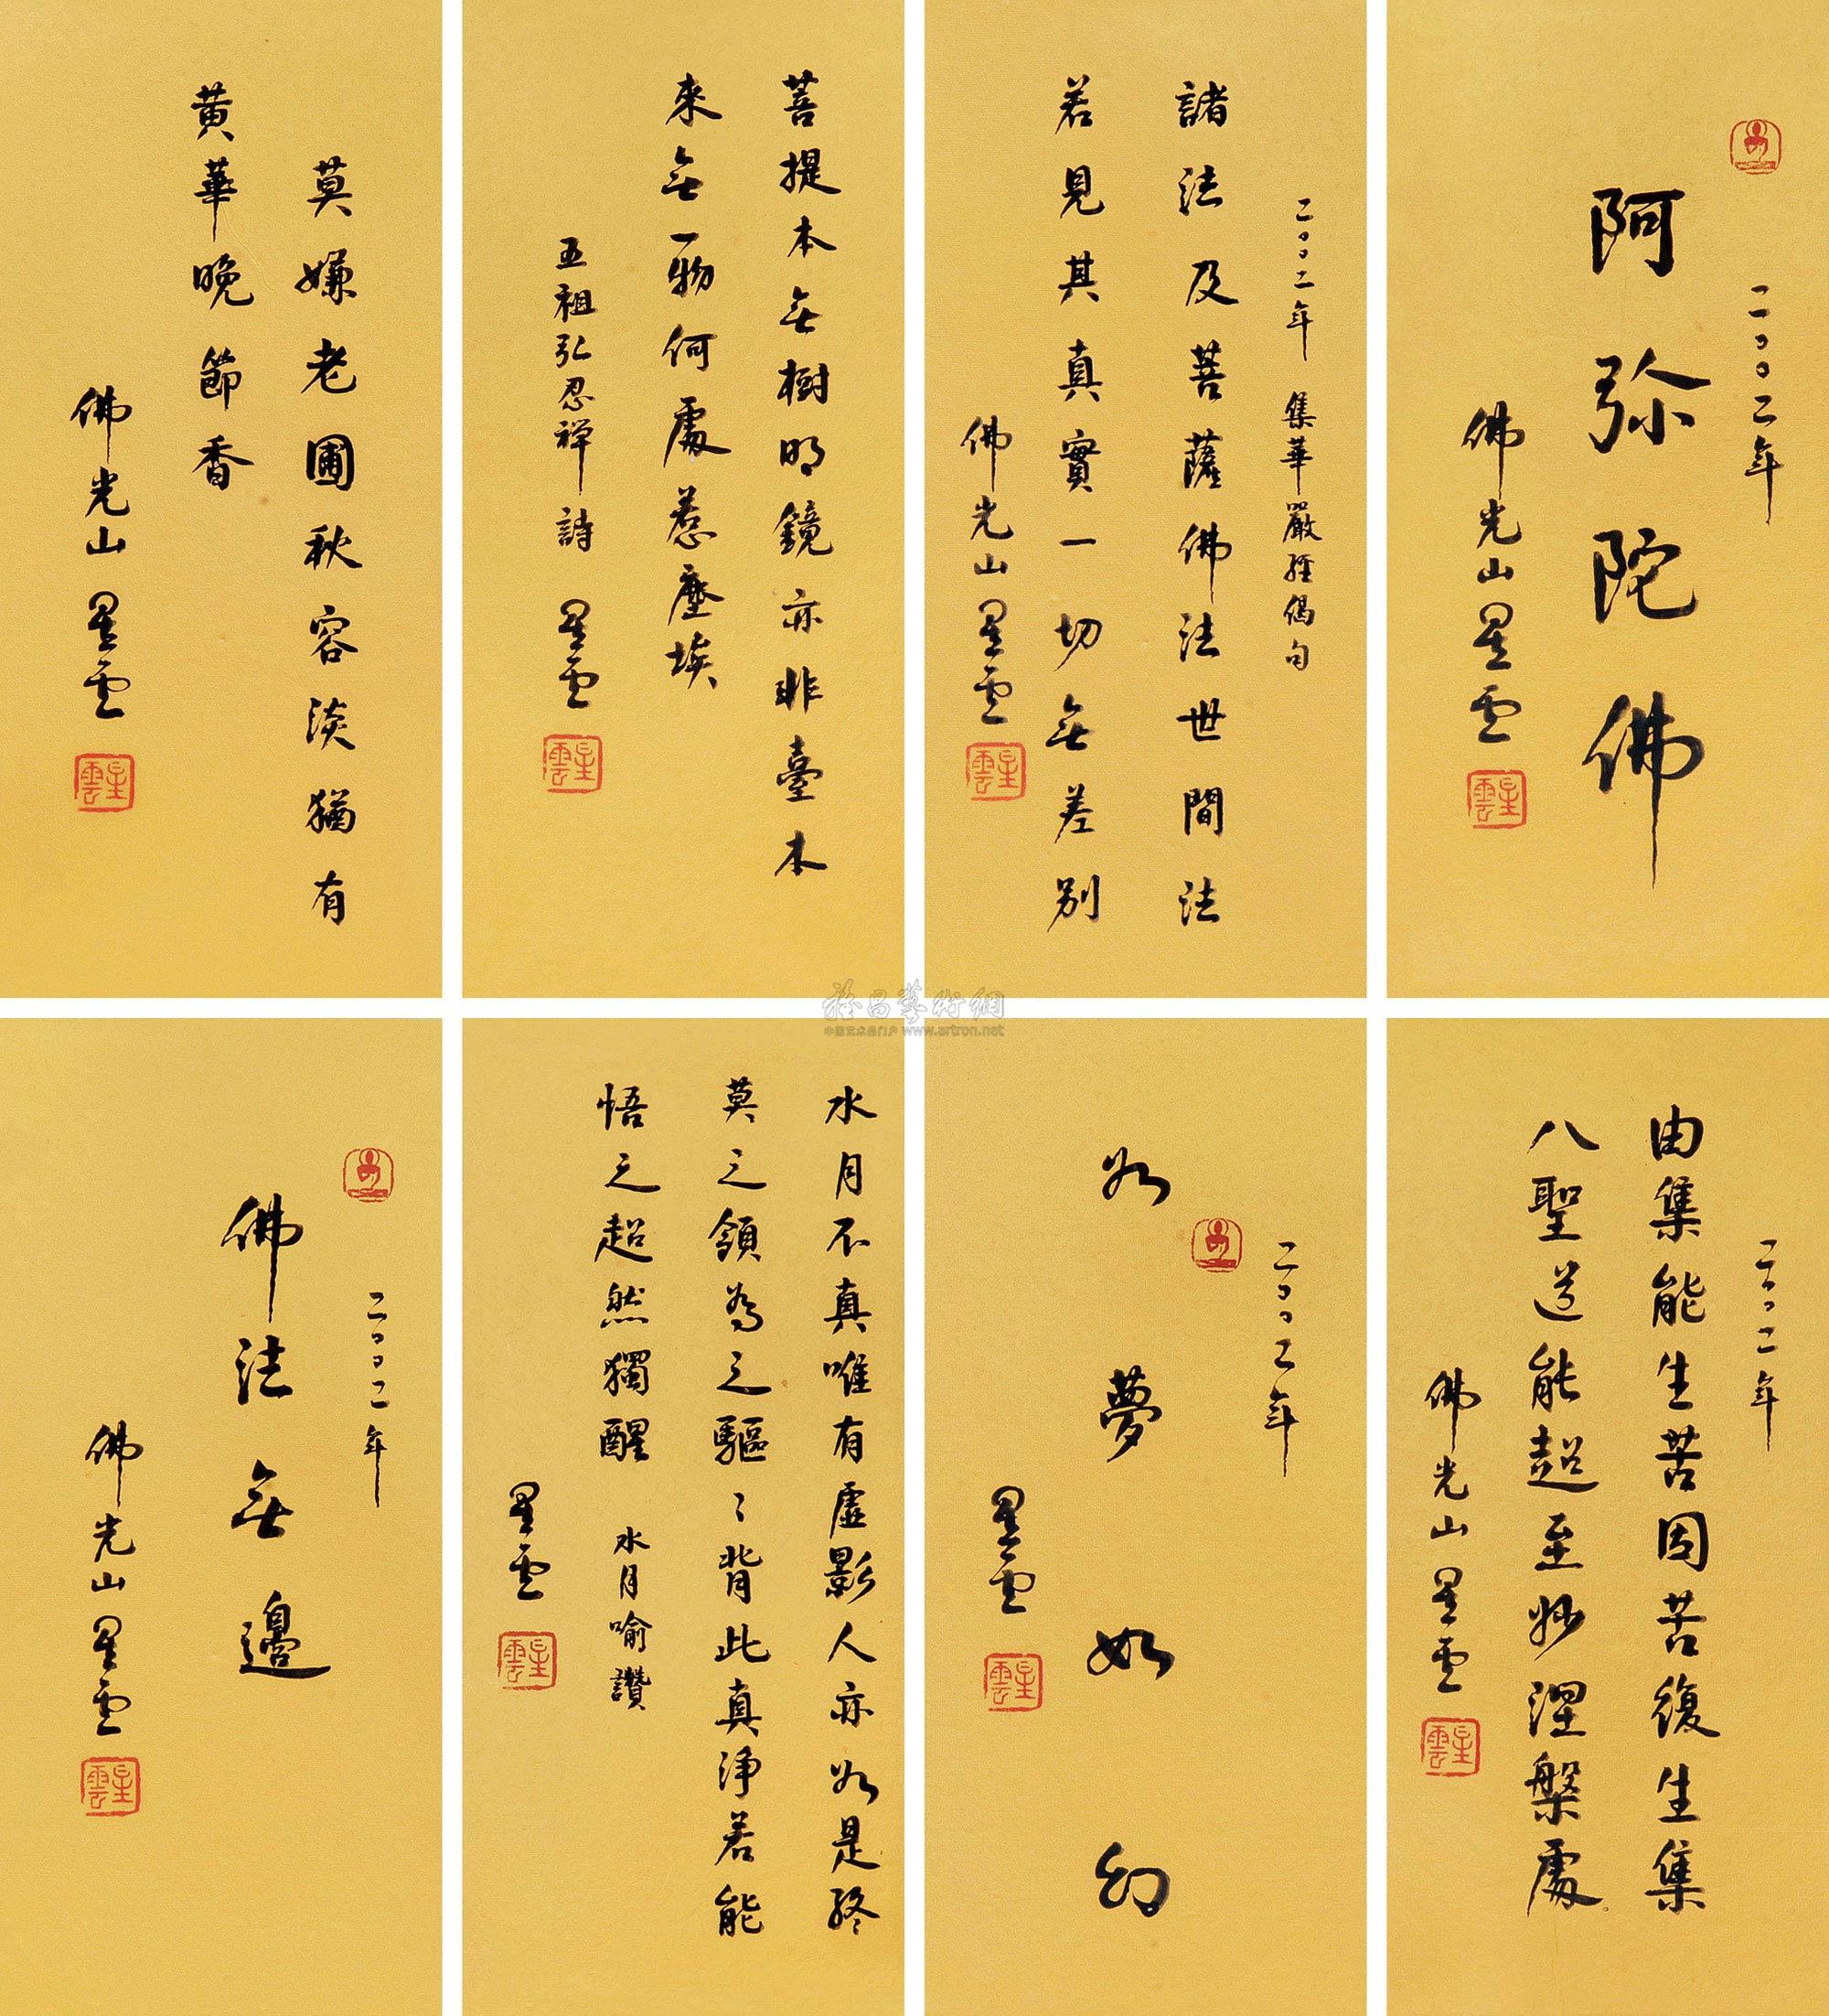 二〇〇二年
阿弥陀佛
佛光山星雲
星雲
二〇〇二年 集華嚴經偈句
諸法及菩薩佛法世間法
若見其真實一切無差別
佛光山星雲
星雲
菩提本無樹明鏡亦非臺本
來無一物何處惹塵埃
五祖弘忍禅詩 星雲
星雲
莫嫌老圃秋容淡猶有
黄華晚節香
佛光山星雲
星雲
二〇〇二年
由集能生苦因苦復生集
八聖道能超至妙涅槃處
佛光山星雲
星雲
二〇〇二年
如夢如幻
星雲
星雲
水月不真唯有虛影人亦如是終
莫之領為之驅〻背此真淨若能
悟之超然獨醒 水月喻讚
星雲
星雲
二〇〇二年
佛法無邊
佛光山星雲
星雲
雅昌藝術網
中国艺术品门户 www.artron.net